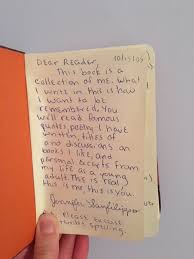 Dear Reader, 10/15/05
This book is a
collection of me. What
I write in this is how
I want to be
remembered. You
will read famous
quotes, poetry I have
written, titles of
and discussions on
books I like, and
personal excerpts from
my life as a young
adult. This is real,
this is me, this is you.
Jennifer
P.S. Please excuse
spelling.